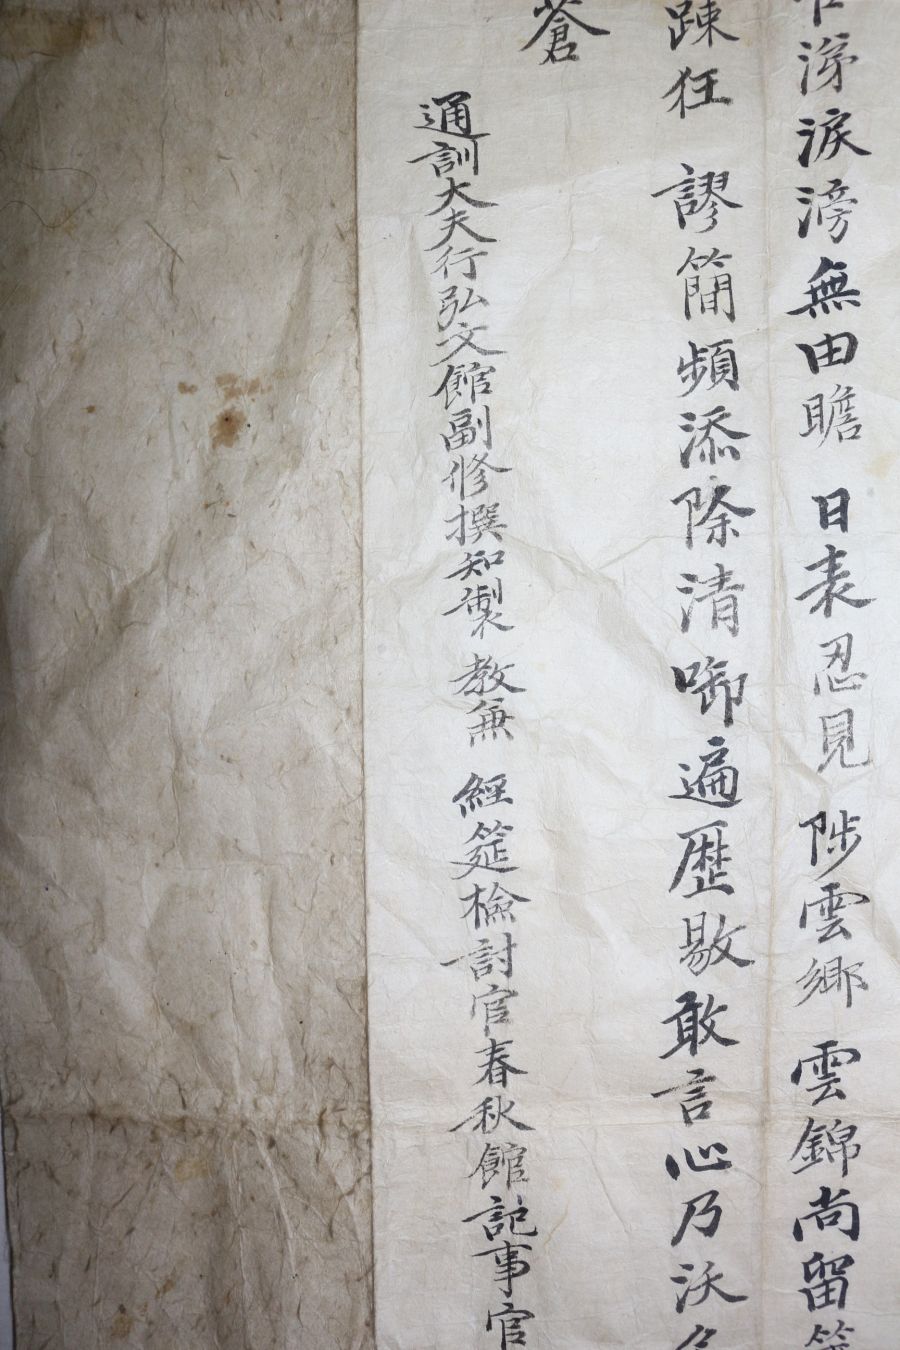 涕淚滂無由瞻 日表忍見 陟雲鄉 雲錦尚留
踈狂 謬簡頻添除清啣遍歷敭敢言心乃沃
蒼
通訓大夫行弘文館副修撰知製 教兼 經筵檢討官春秋館記事官